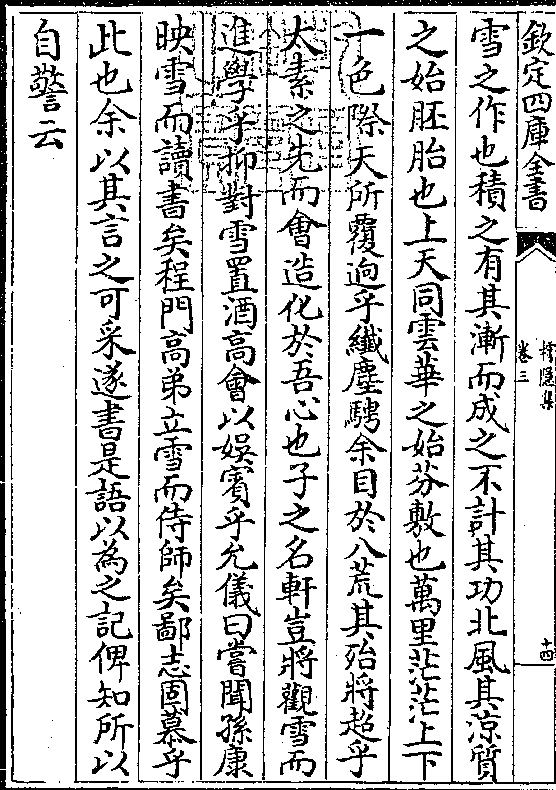 欽定四庫全書
卷三
十四
雪之作也積之有其漸而成之不計其功北風其涼質
之始胚胎也上天同雲華之始芬敷也萬里茫茫上下
一色際天所覆逈乎纎塵騁余目於八荒其殆將超乎
太素之先而會造化於吾心也子之名軒豈將觀雪而
進學乎抑對雪置酒高會以娛賓乎允儀曰嘗聞孫康
映雪而讀書矣程門高弟立雪而侍師矣鄙志固慕乎
此也余以其言之可采遂書是語以為之記俾知所以
自警云